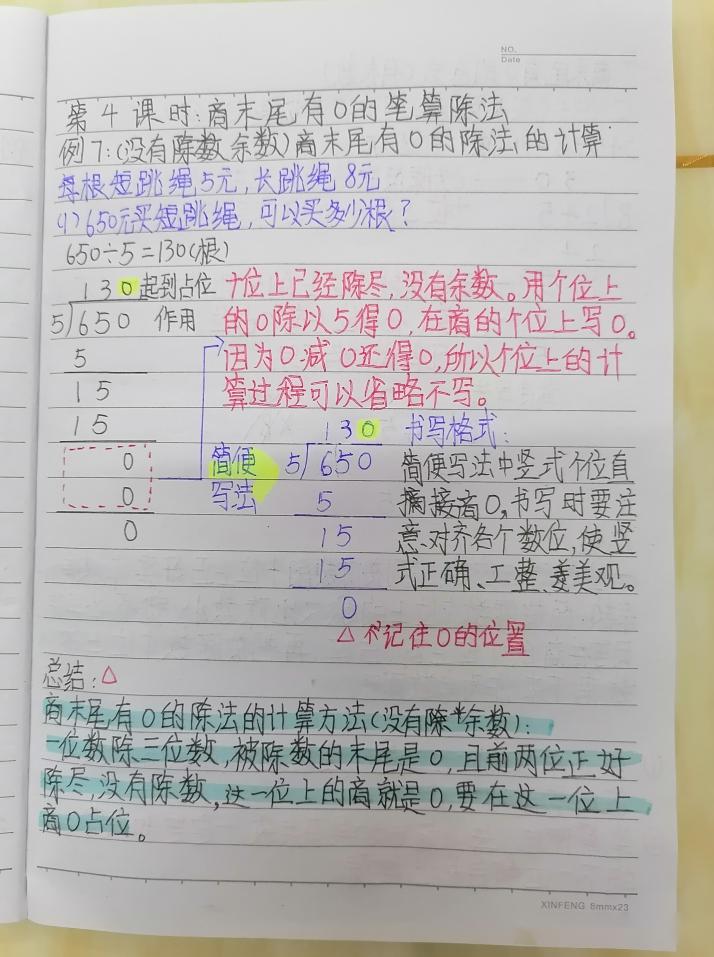 NO.
Date
第4课时:商末尾有0的笔算除法
例7:(没有除数余数)商末尾有0的除法的计算
每根短跳绳5元,长跳绳8元
(1)650元买短跳绳,可以买多少根?
650÷5=130(根)
130起到占位
5)650 作用
5
15
15
0
0
0
十位上已经除尽,没有余数。用个位上
的0除以5得0,在商的个位上写0。
因为0减0还得0,所以个位上的计
算过程可以省略不写。
简便
写法
130
5)650
5
15
15
0
书写格式:
简便写法中竖式个位直
接商0,书写时要注
意对齐各个数位,使竖
式正确、工整、美观。
△ 记住0的位置
总结:△
商末尾有0的除法的计算方法(没有余数):
一位数除三位数,被除数的末尾是0,且前两位正好
除尽没有除数,这一位上的商就是0,要在这一位上
商0占位。
XINFENG 8mmx23